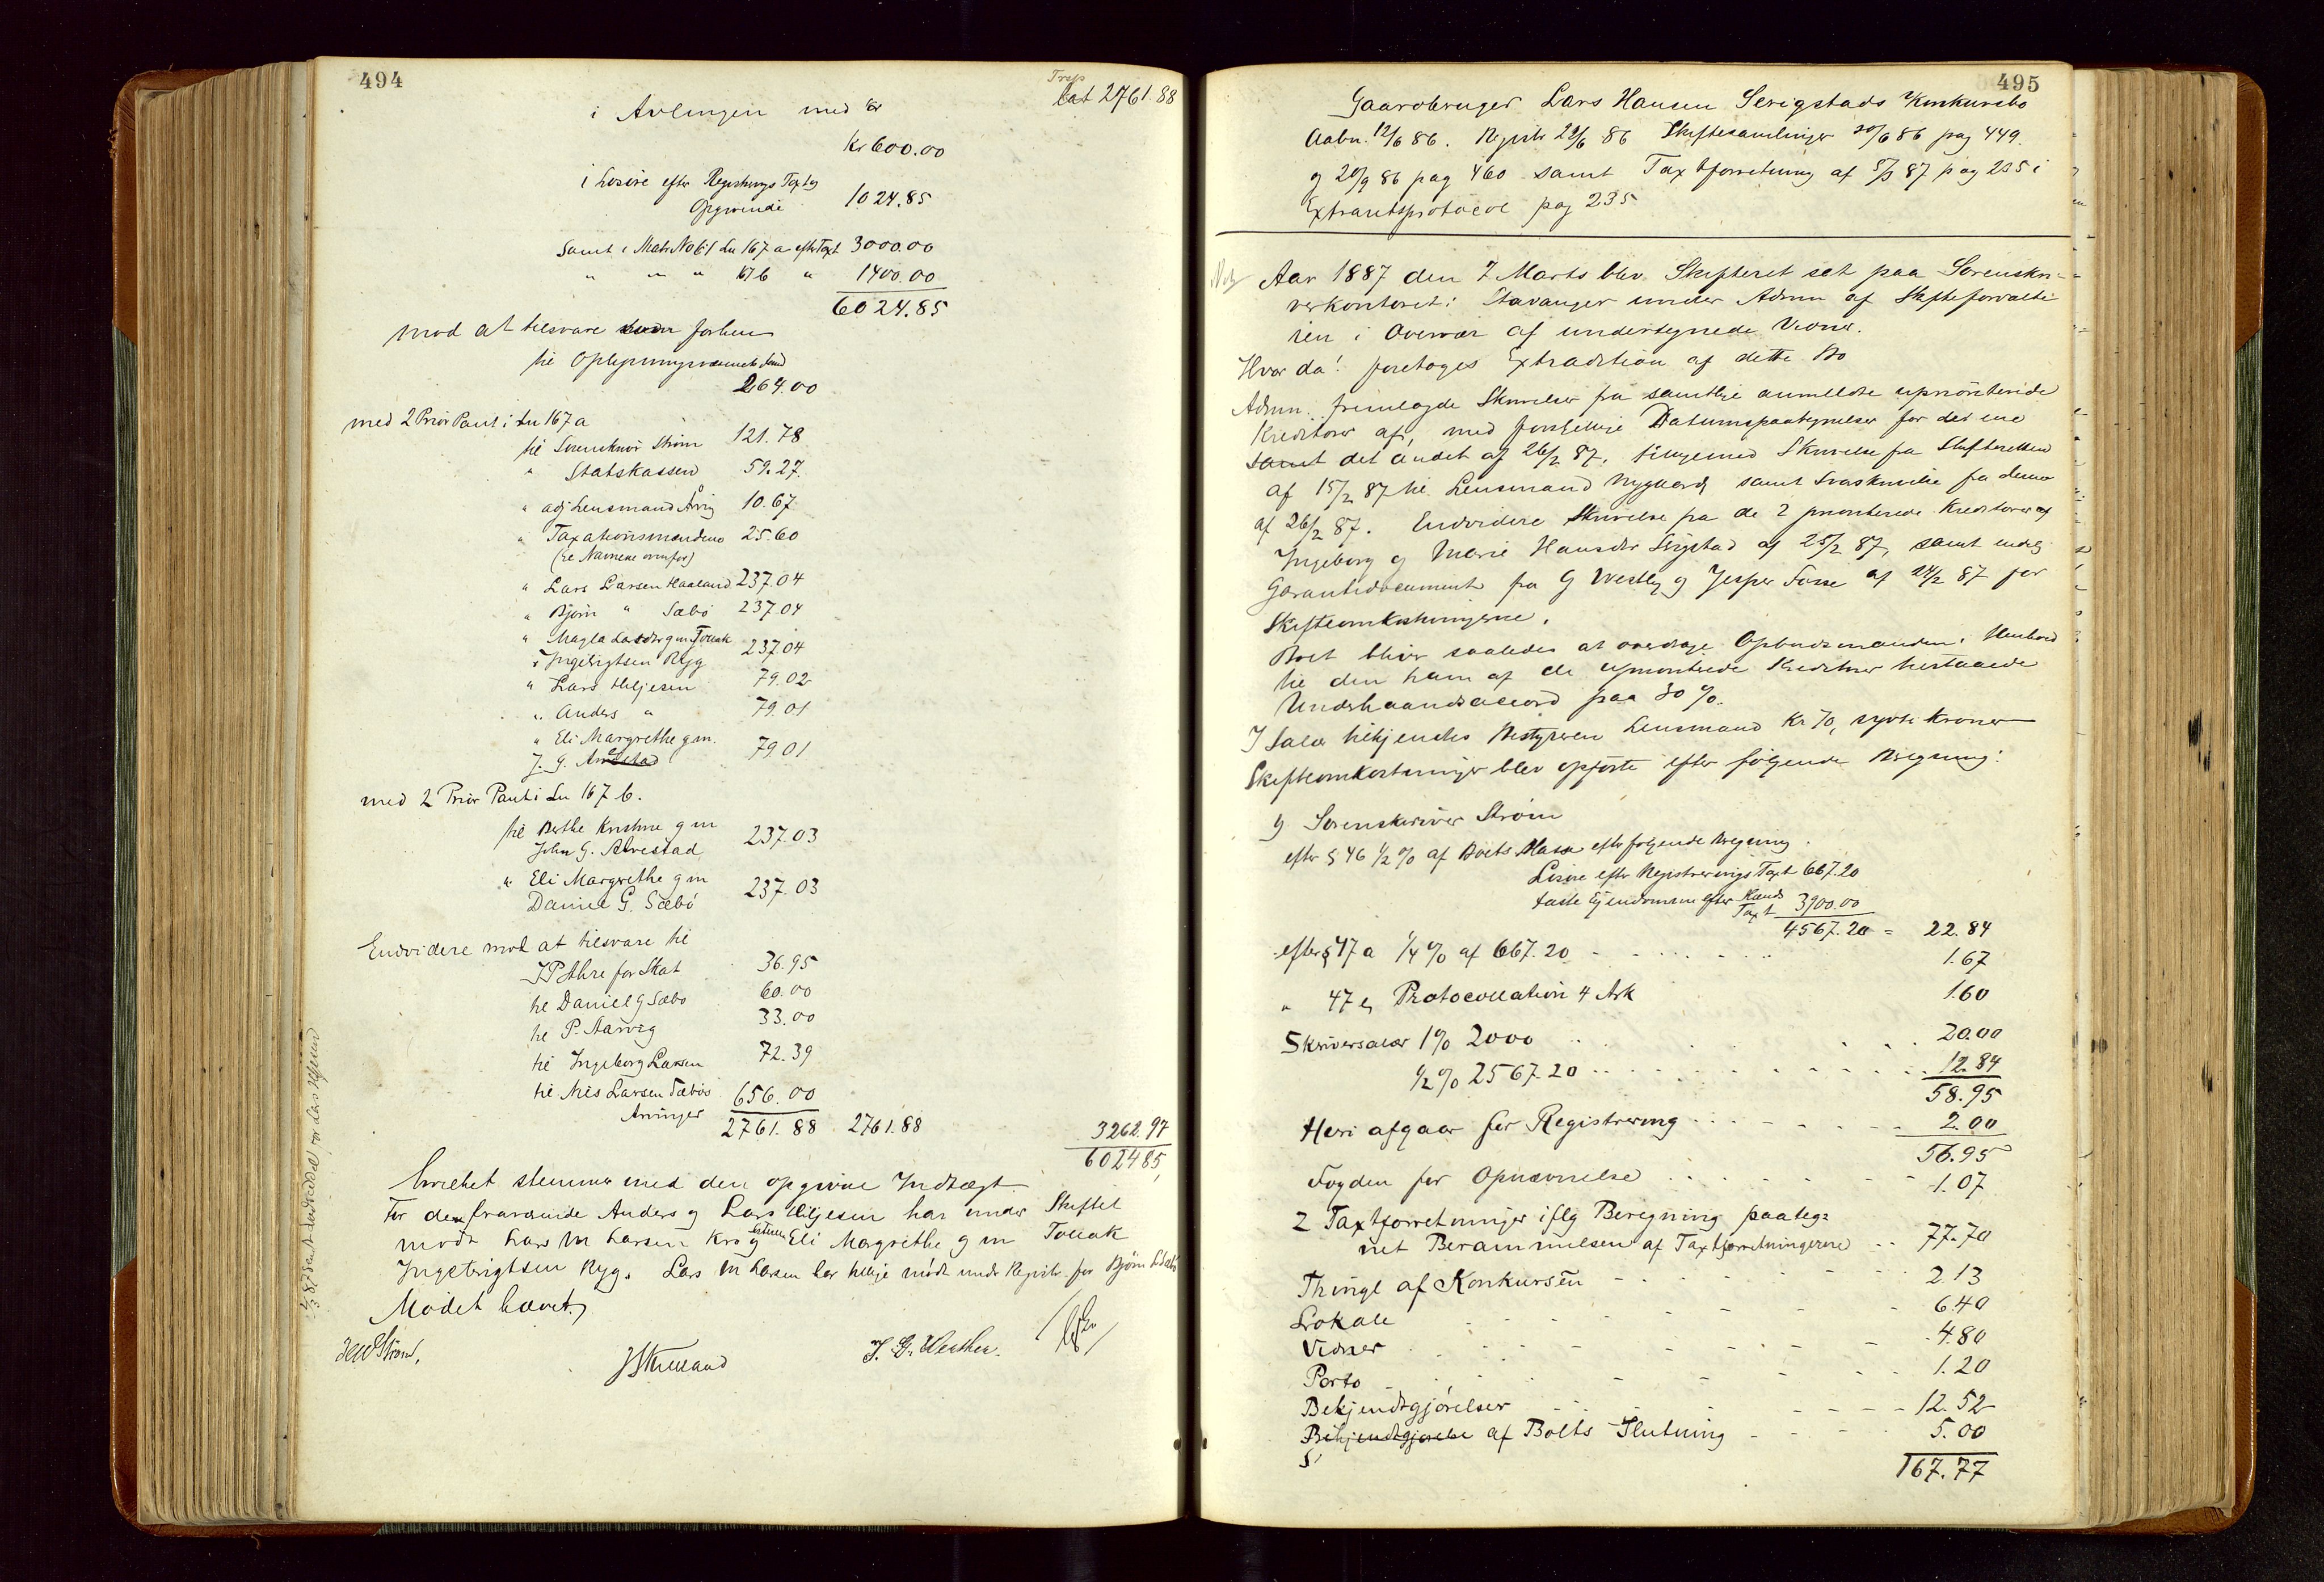 494
Trsp
lat 2761.88
i Avlingen med
Kr 600.00
i Løsøre efter Registrerings Taxt og
Opgivende 1024.85
Samt i Matr No 61 Ln 167 a efter Taxt 3000.00
" " " 167 b " 1400.00
6024.85
mod at tilsvare forlen
til Oplysningsvæsenets Fond
264.00
med 2 Prior Pant i Ln 167 a
til Sorenskriver Strøm 121.78
" Statskassen 59.27
" adj Lensmand 10.67
" Taxationsmændene 25.60
(se Navnene ovenfor)
" Lars Larsen Haaland 237.04
" Bjørn " Sæbø 237.04
" Magla Larsdtr gm Tollak
Ingebrigtsen Ryg 237.04
" Lars Helgesen 79.02
" Anders " 79.01
" Eli Margrethe gm.
J. G. 79.01
med 2 Prior Pant i Ln 167 b.
til Berthe Kristine gm
John G. Alvestad 237.03
" Eli Margrethe gm
Daniel G. Sæbø 237.03
Endvidere mod at tilsvare til
for Skat 36.95
til Daniel G Sæbø 60.00
til P. Aarvig 33.00
til Ingeborg Larsen 72.39
til Nils Larsen Sæbøs
Arvinger 656.00
2761.88 2761.88
3262.97
6024.85
hvilket stemmer med den opgivne Indtægt
For den fraværende Anders og Lars Helgesen har under Skiftet
mødt Lars M Larsen Kro og Eli Margrethe gm Tollak
Ingebrigtsen Ryg. Lars M Larsen har tillige mødt under Registr. for Bjørn L Sæbø
Mødet hævet,
Strøm,
495
Gaardbruger Lars Hansen Serigstads Konkursbo
Aabn. 12/6 86. Registr 29/6 86 Skiftesamlinger 30/6 86 pag 449.
og 20/9 86 pag 460 samt Taxtforretning af 5/3 87 pag 235 i
Extraretsprotocol pag 235
Aar 1887 den 7 Marts blev Skifteret sat paa Sorenskri-
verkontoret i Stavanger under Admn af Skifteforvalte
ren i Overvær af undertegnede Vidner.
Hvor da: foretoges Extradition af dette Bo
Admn. fremlagde Skrivelser fra samtlige anmeldte uprioriterede
Kreditorer af, med forskjellige Datumspaategnelser for det ene
samt det andet af 26/2 87, tilligemed Skrivelse fra Skifteretten
af 15/2 87 til Lensmand Nygaard samt Svarskrivelse fra denne
af 26/2 87. Endvidere Skrivelse fra de 2 prioriterede Kreditorer af
Ingeborg og Marie Hansdtr Serigstad af 25/2 87, samt endelig
Garantidocument fra G Westby og Jesper Fosse af 24/2 87 for
Skifteomkostningerne.
Boet bliver saaledes at overdrage Opbudsmanden i Henhold
til den ham af de upriorterede Kreditorer tilstaaede
Underhaandsaccord paa 30 %.
I Salær tilkjendes Bestyreren Lensmand Kr 70, sytti Kroner
Skifteomkostninger blev opførte efter følgende Beregning:
1) Sorenskriver Strøm
efter § 46 1/2 % af Boets Masse efter følgende Beregning.
Løsøre efter Registrerings Taxt 667.20
faste Ejendomme efter
Taxt 3900.00
4567.20 = 22.84
efter § 47 a 1/4 % af 667.20 1.67
" 47 Protocollation 4 Ark 1.60
Skriversalær 1 % 2000 20.00
1/2 % 2567.20 12.84
58.95
Heri afgaar for Registrering 2.00
56.95
Fogden for Opnævnelse 1.07
2 Taxtforretninger iflg Beregning paateg-
net Berammelsen af Taxtforretningerne 77.70
Thingl af Konkursen 2.13
Lokale 6.40
Vidner 4.80
Porto 1.20
Bekjendtgjørelser 12.52
Bekjendtgjørelse af Boets Slutning 5.00
167.77